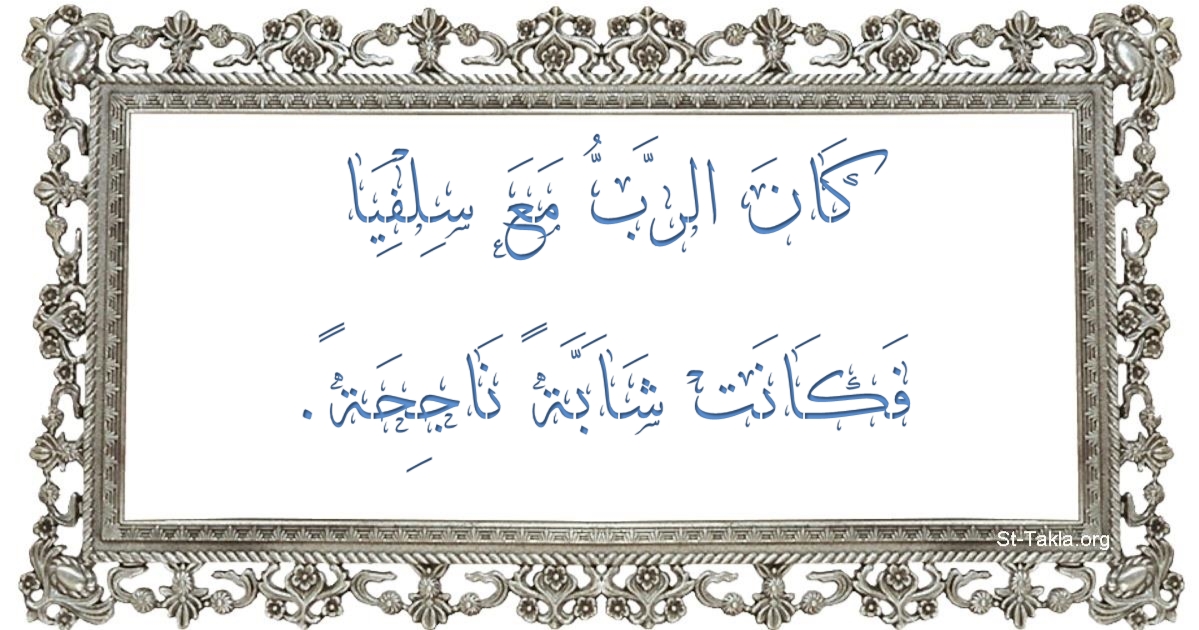 كَانَ الرَّبُّ مَعَ سِلِفْيَا
فَكَانَتْ شَابَّةً نَاجِحَةً.
St-Takla.org